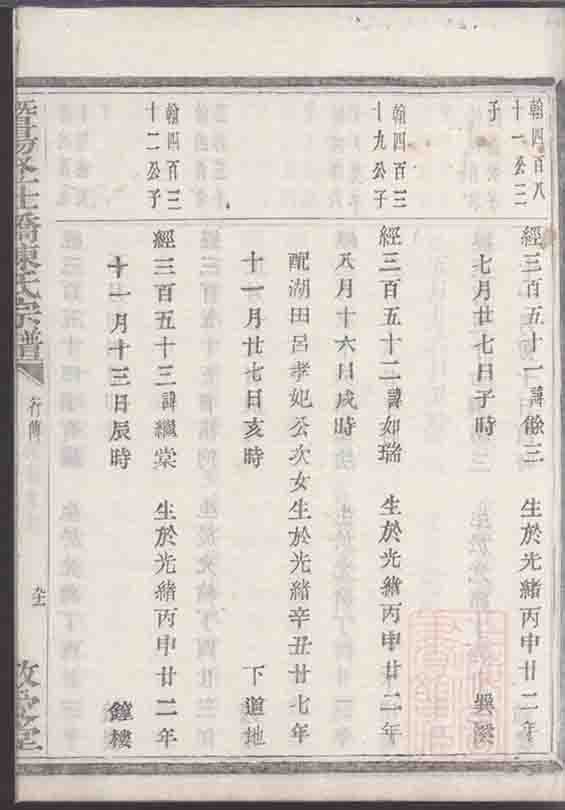 翰四百八
十一公三
子
經三百五十一諱餘三 生於光緒丙申廿二年
七月廿七日子時 巽溪
翰四百三
十九公子
經三百五十二諱如瑞 生於光緒丙申廿二年
八月十六日戌時
配湖田呂孝妃公次女生於光緒辛丑廿七年
十一月廿七日亥時 下道地
翰四百三
十二公子
經三百五十三諱繼棠 生於光緒丙申廿二年
十一月十三日辰時 鐘樓
橋陳氏宗譜
行傳